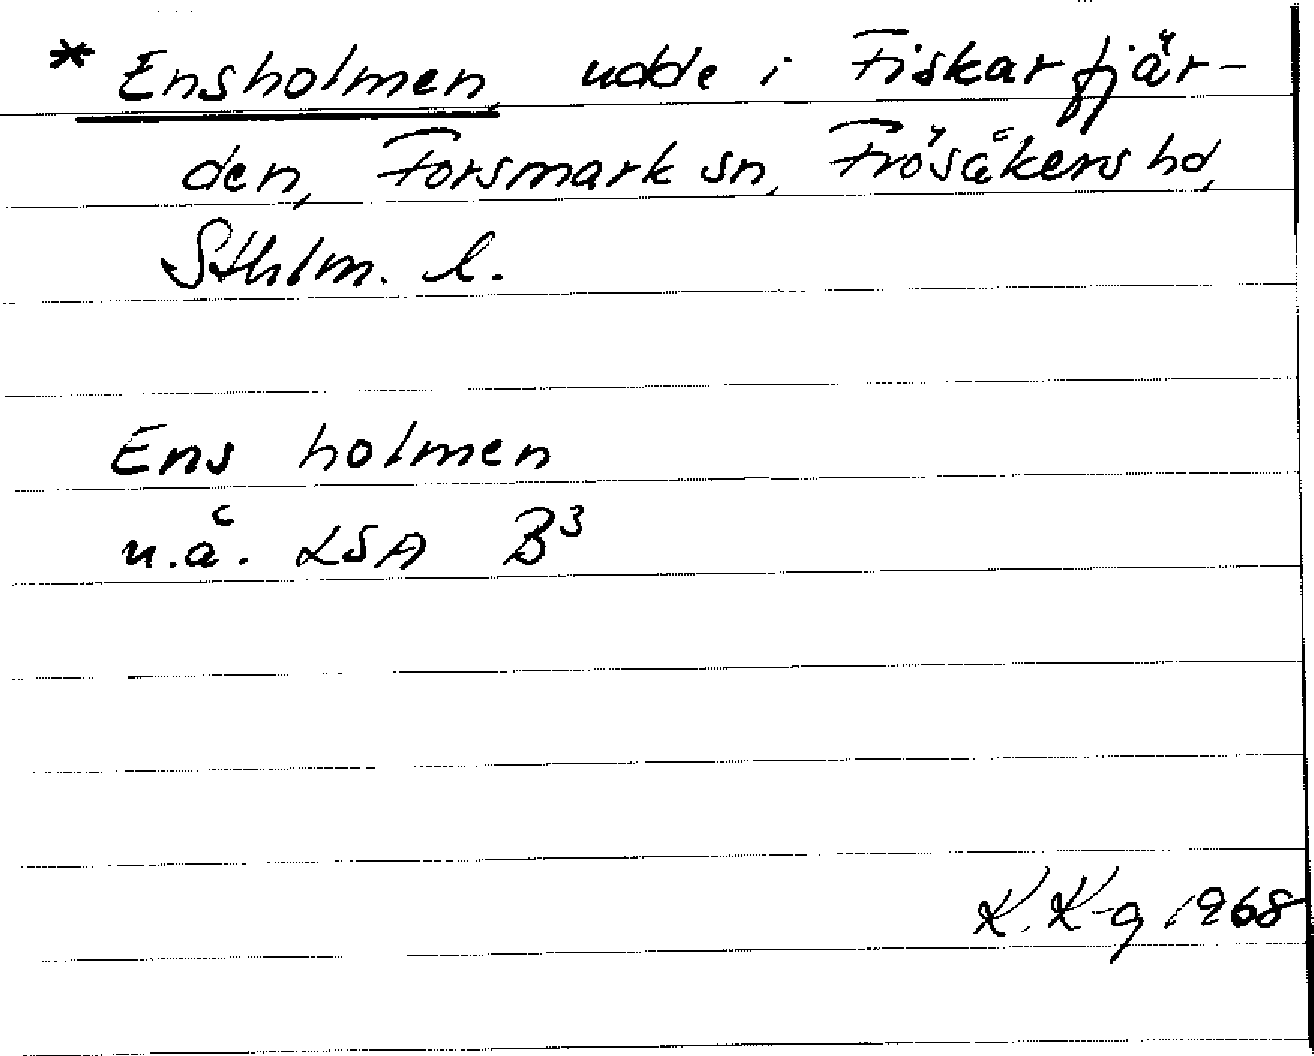 * Ensholmen, udde i Fiskarfjär-
den, Forsmark sn, Frösåkers hd,
Sthlm. l.
Ens holmen
u.å. LSA B³
K. K-g 1968